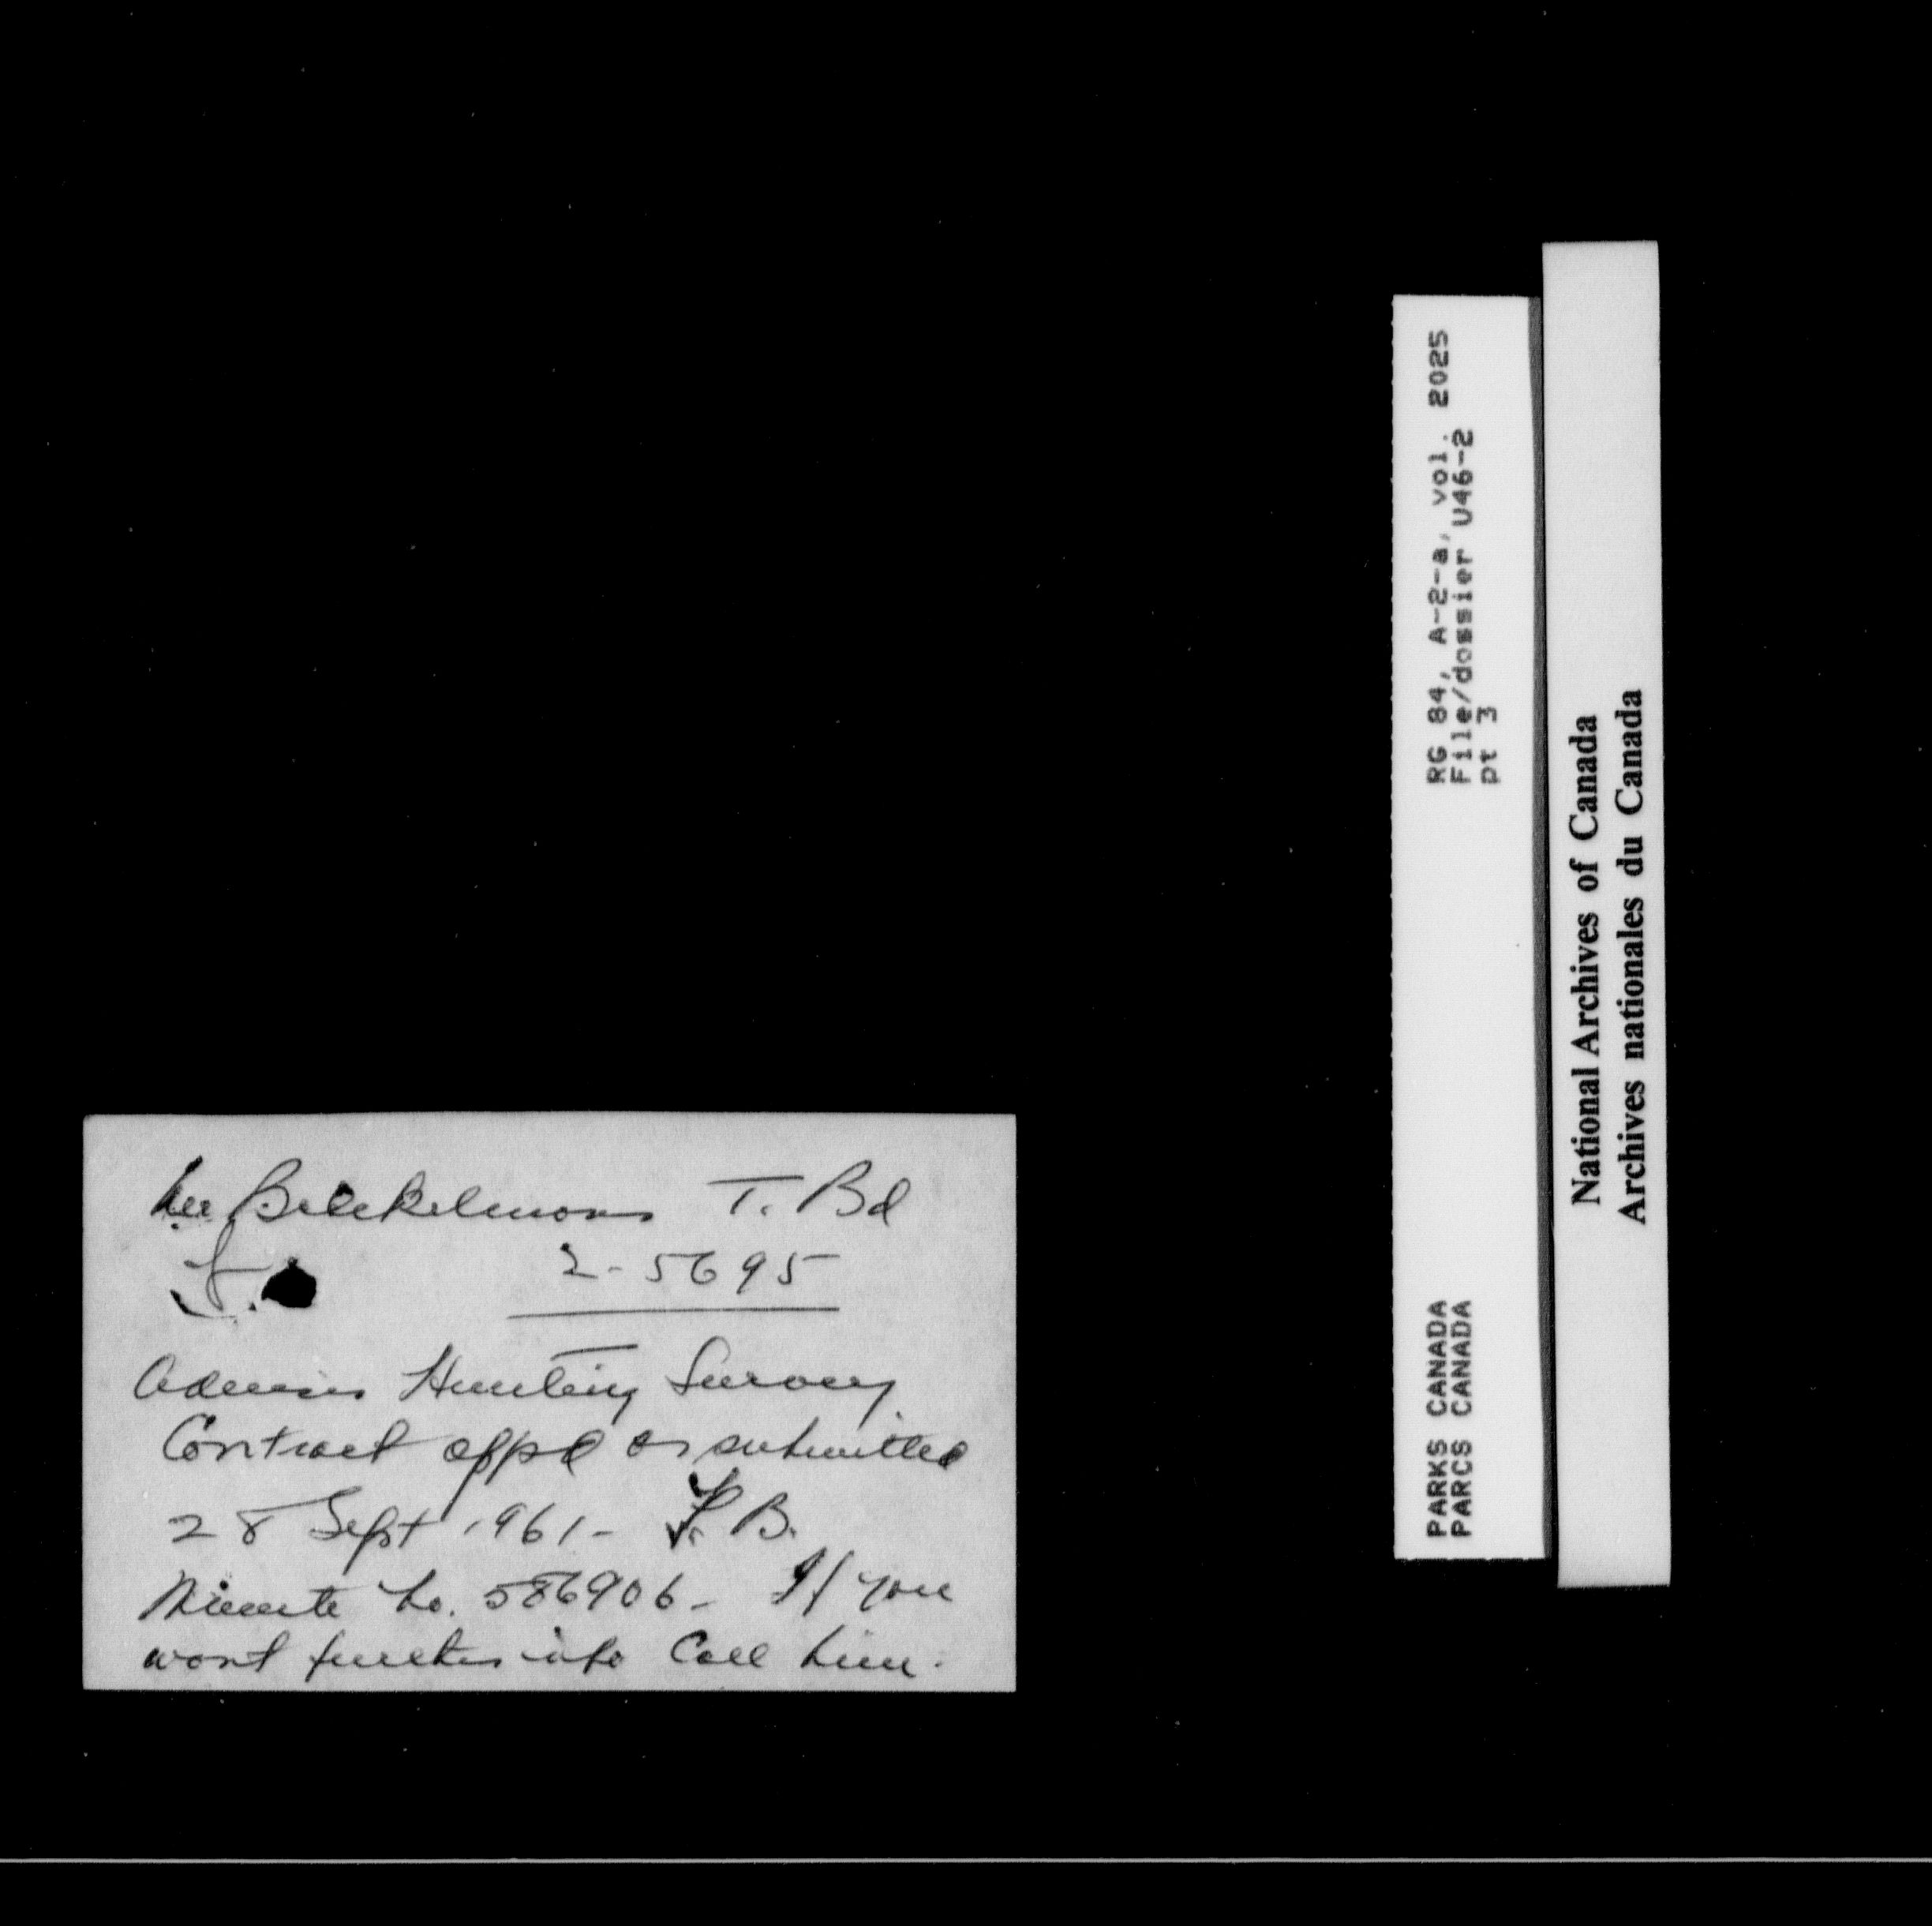 T. Bd
2-5695
Hunting Survey
Contract appd as submitted
28 Sept 1961 - T. B.
Minute No. 586906 - If you
want further info Call him.
RG 84, A-2-a, vol. 2025
File/dossier U46-2
pt 3
PARKS CANADA
PARCS CANADA
National Archives of Canada
Archives nationales du Canada